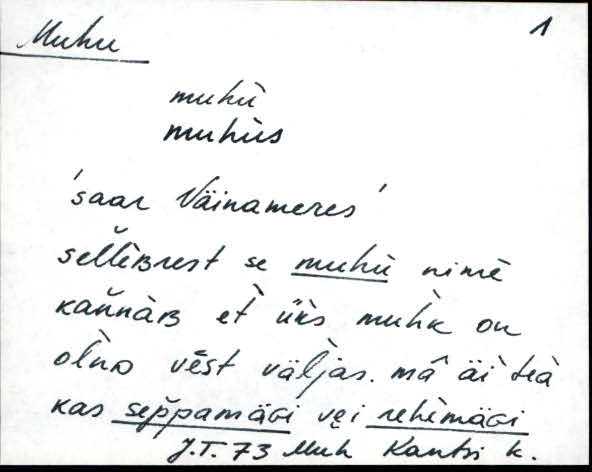 Muhu 1
muhù
muhùs
'saar Väinameres'
sellèʙrest se muhù nimè
kannàʙ et̀ üks muhk on
olnᴅ vēst väljas. mâ äì teà
kas seppamäɢi vęi rehèmäɢi
J.T. 73 Muh Kantsi k.